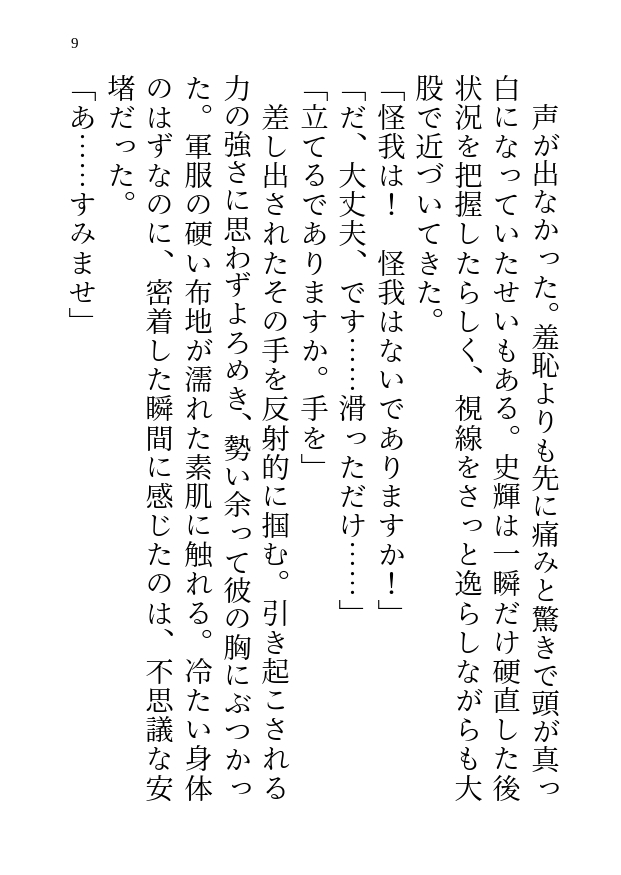 9
　声が出なかった。羞恥よりも先に痛みと驚きで頭が真っ
白になっていたせいもある。史輝は一瞬だけ硬直した後
状況を把握したらしく、視線をさっと逸らしながらも大
股で近づいてきた。
「怪我は！　怪我はないでありますか！」
「だ、大丈夫、です……滑っただけ……」
「立てるでありますか。手を」
　差し出されたその手を反射的に掴む。引き起こされる
力の強さに思わずよろめき、勢い余って彼の胸にぶつかっ
た。軍服の硬い布地が濡れた素肌に触れる。冷たい身体
のはずなのに、密着した瞬間に感じたのは、不思議な安
堵だった。
「あ……すみませ」